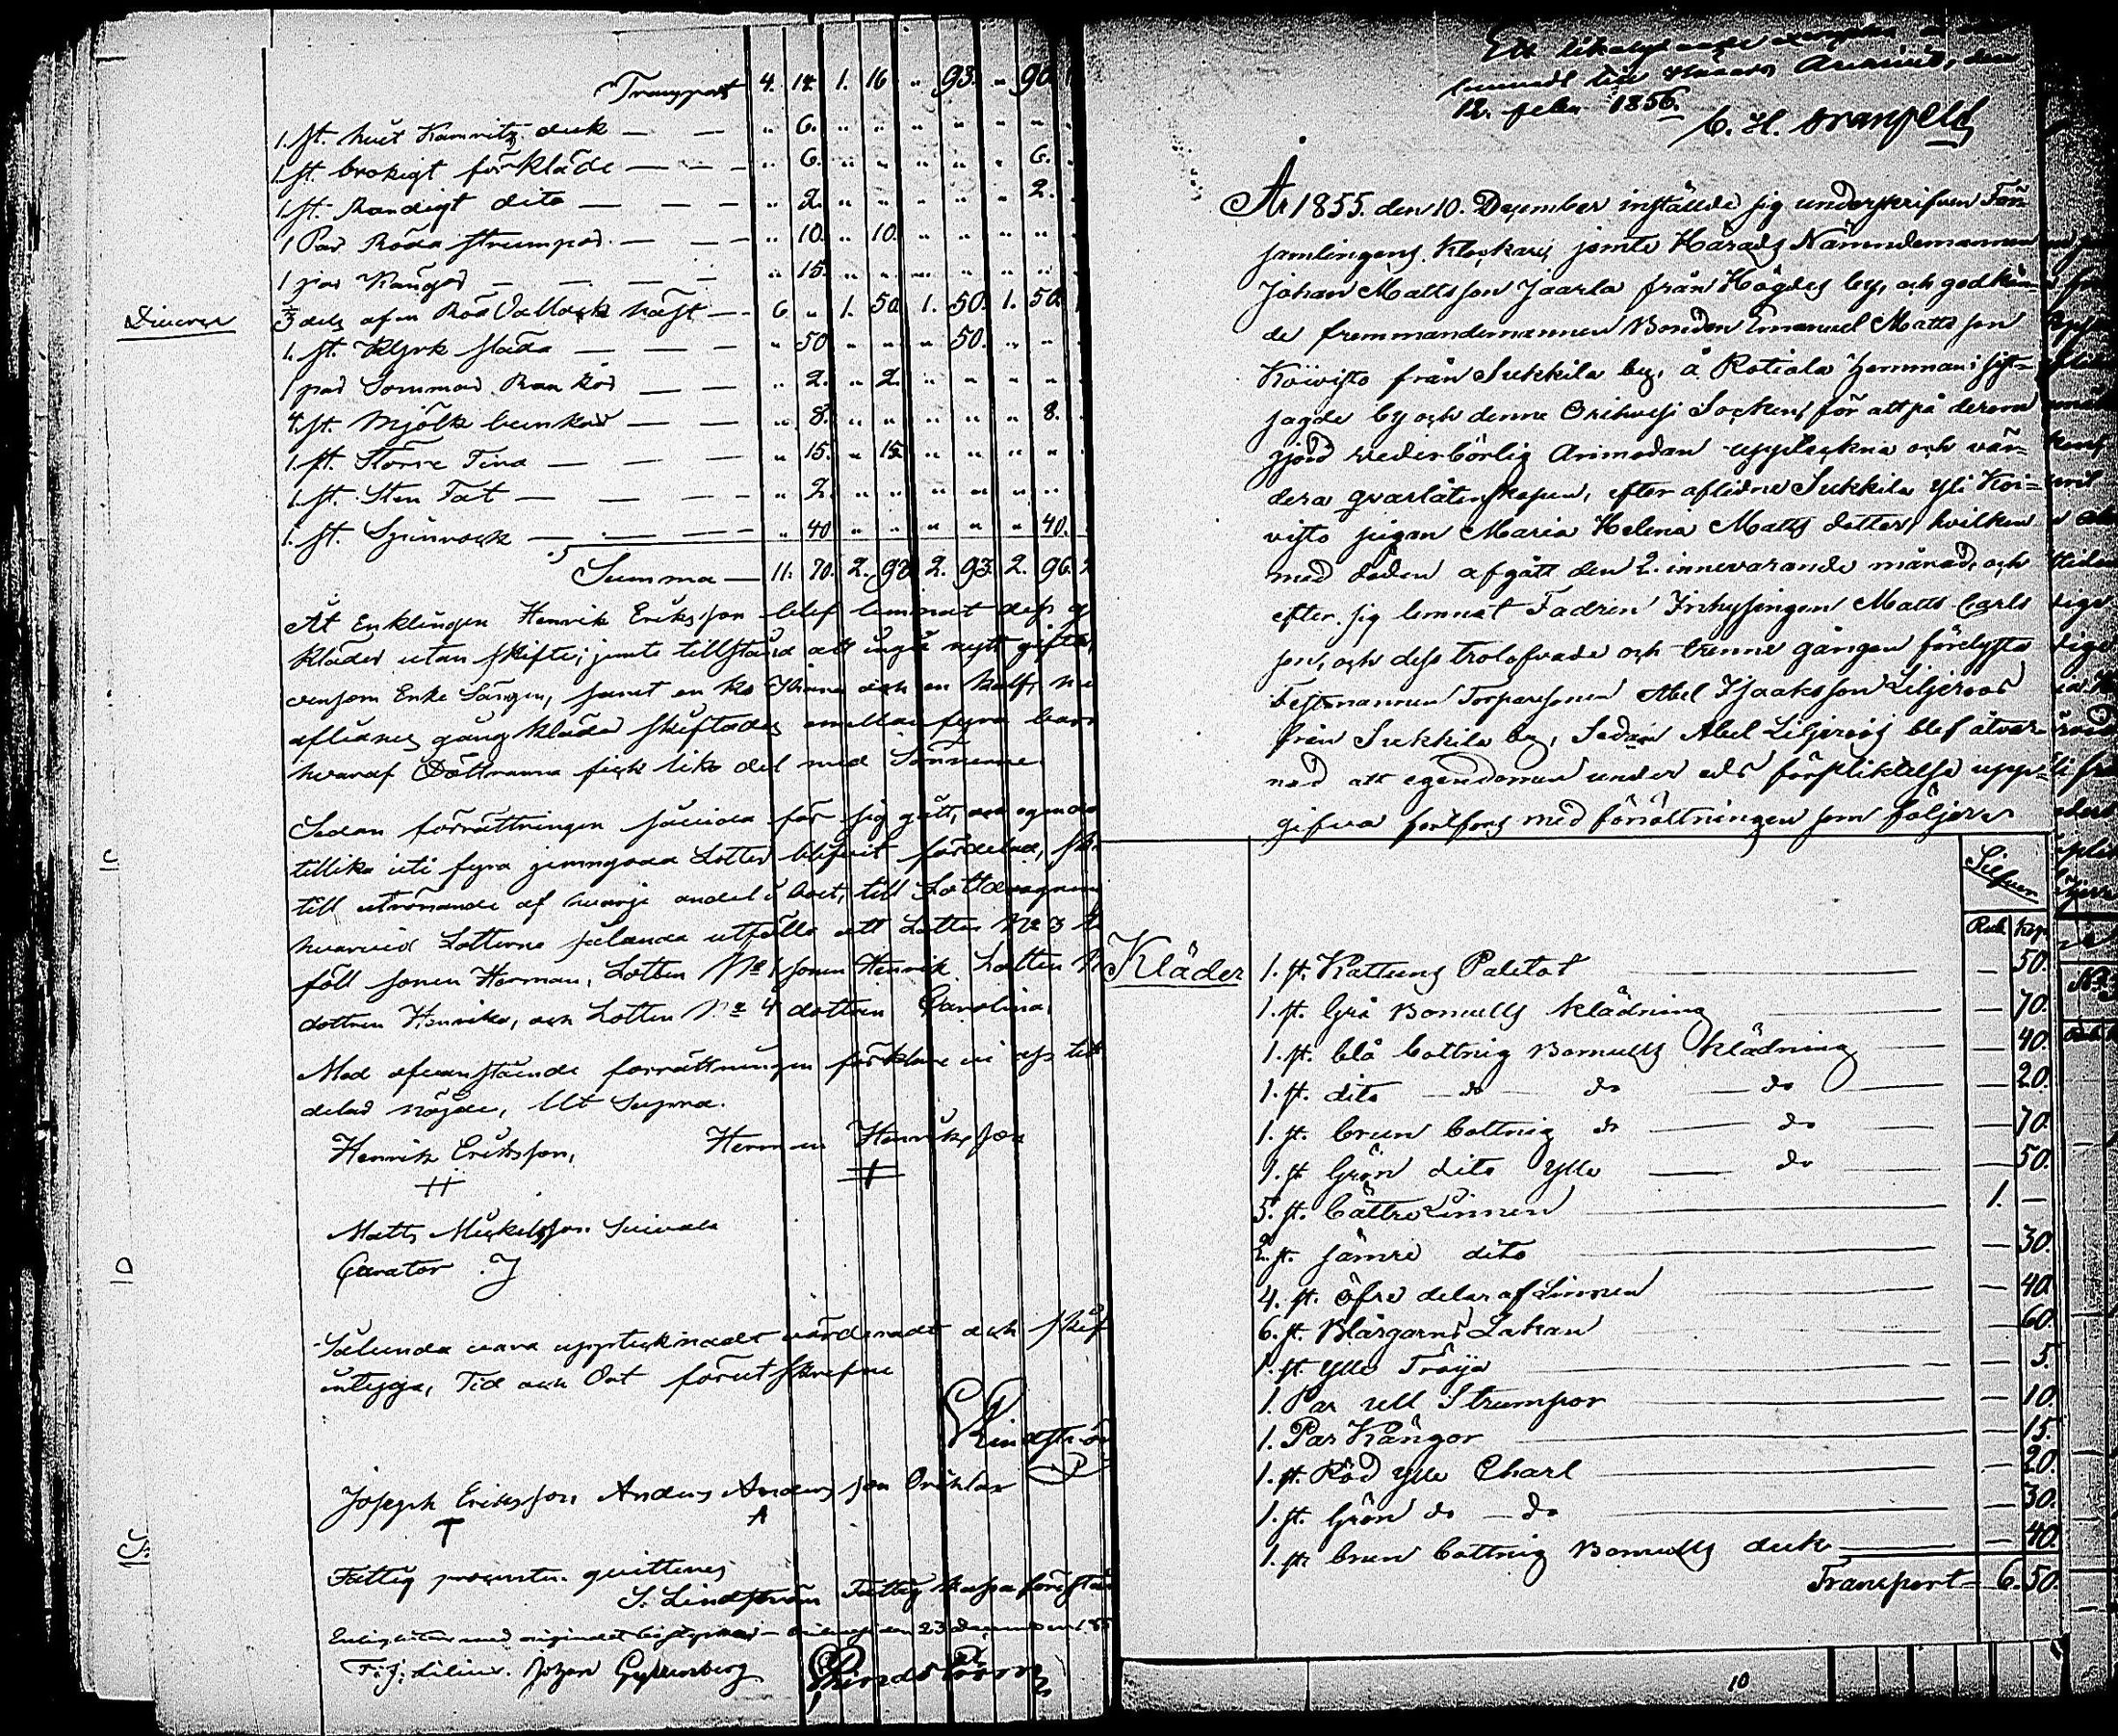 Transport 4. 14. 1. 16 " 93. " 90.
1. st. huit Kamritz duk — — " 6. " " " " " "
1. st. brokigt förkläde — — — " 6. " " " " " 6.
1. st. Randigt dito — — — " 2. " " " " " 2.
1 Par Röda strumpor — — — " 10. " 10. " " " "
1 par Kängor — — — " 15. " " " " " "
Diverse
2/3 dels af en Röd Vallack häst — 6 " 1. 50. 1. 50. 1. 50.
1. st. Kyrk släda — — — " 50 " " " 50. " "
1 par Sommar — — " 2. " 2. " " " "
4. st. Mjölk bunkar — — " 8. " " " " " 8.
1. st. Större Tina — — — " 15. " 15. " " " "
1. st. Sten Fat — — — " 2. " " " " " "
1. st. Spinrock — — — — " 40 " " " " " 40.
Summa — 11. 70. 2. 93 2. 93. 2. 96. 2
Åt Enklingen Henrik Eriksson blef lemnat dess g
kläder utan skifte; jemte tillstånd att ingå nytt gifte,
ävensom Enke Sängen, samt en ko och en kalf,
aflidnes gång kläder skiftades emellan fyra barn
hvaraf Döttrarna fick lika del med Sönnerne.
Sedan förrättningen sålunda för sig gått, och egendo
tillika uti fyra jemngoda Lotter blifvit fördelad,
till utrönande af hvarje andel i boet, till Lottdragning
hvarvid Lotterne sålunda utfölle att Lotten No 3
föll sonen Herman, Lotten No 1 sonen Henrik, Lotten N
dottren Henrika, och Lotten No 4 dottren Carolina.
Med ofvanstående förrättningen förklare vi oss till
delar nöjde, Ut Supra.
Henrik Eriksson, Herman Henriksson
Matts Mickelsson Suivala
Curator
Sålunda vara upptecknadt värderadt och skif
intyga, Tid och Ort förut skrefne
Lindströ
Joseph Eriksson Anders Andersson Orihlax
Fattig procenten quitteras
S. Lindström Fattig kassa förestån
med originalet den 23 December 185
Johan Gyllenberg Lindström
Ett likalydande exemplar
lemnadt till Härads Archivet, den
12. febr 1856.
År 1855. den 10. Desember inställde sig underskrifven För
samlingens Klockare, jemte Härads Nämndemannen
Johan Mattsson Jaarla från Högdes by, och godkän-
de fremmandemannen Bonden Emanuel Matts son
Koivisto från Sukkila by, å Rotiala Hemman i sist-
sagde by och denne Orihvesi Socken, för att på derom
gjord vederbörlig Anmodan uppteckna och vär-
dera qvarlåtenskapen, efter aflidne Sukkila Yli Koi-
visto pigan Maria Helena Matts dotter, hvilken
med döden afgått den 2. innevarande månad, och
efter sig lemnat Fadren Inhysingen Matts Carls
son, och dess trolofvade och trenne gången förelysta
Festmannen Torparsonen Abel Isaaksson Liljeroos
från Sukkila by, Sedan Abel Liljeroos blef åtvar-
nad att egendomen under eds förpliktelse upp-
gifva fortfors med förrättningen som följer
Silfver
Rub Kop.
Kläder
1. st. Kattuns Paletot — 50.
1. st. Grå Bomulls klädning — 70.
1. st. blå bottnig Bomulls klädning — 40.
1. st. dito — do — do — do — 20.
1. st. brun bottnig do — do — 70.
1. st. Grön dito Ylle — do — 50.
5. st. bättre Linnen — 1. —
2. st. sämre dito — 30.
4. st. öfre delar af Linnen — 40.
6. st. Blårgarns Lakan — 60.
1. st. Ylle Tröija — 5.
1. Par ull Strumpor — 10.
1. Par Kängor — 15.
1. st. Röd Ylle Charl — 20.
1. st. Grön do — do — 30.
1. st. brun bottnig Bomulls duk — 40.
Transport — 6. 50.
10